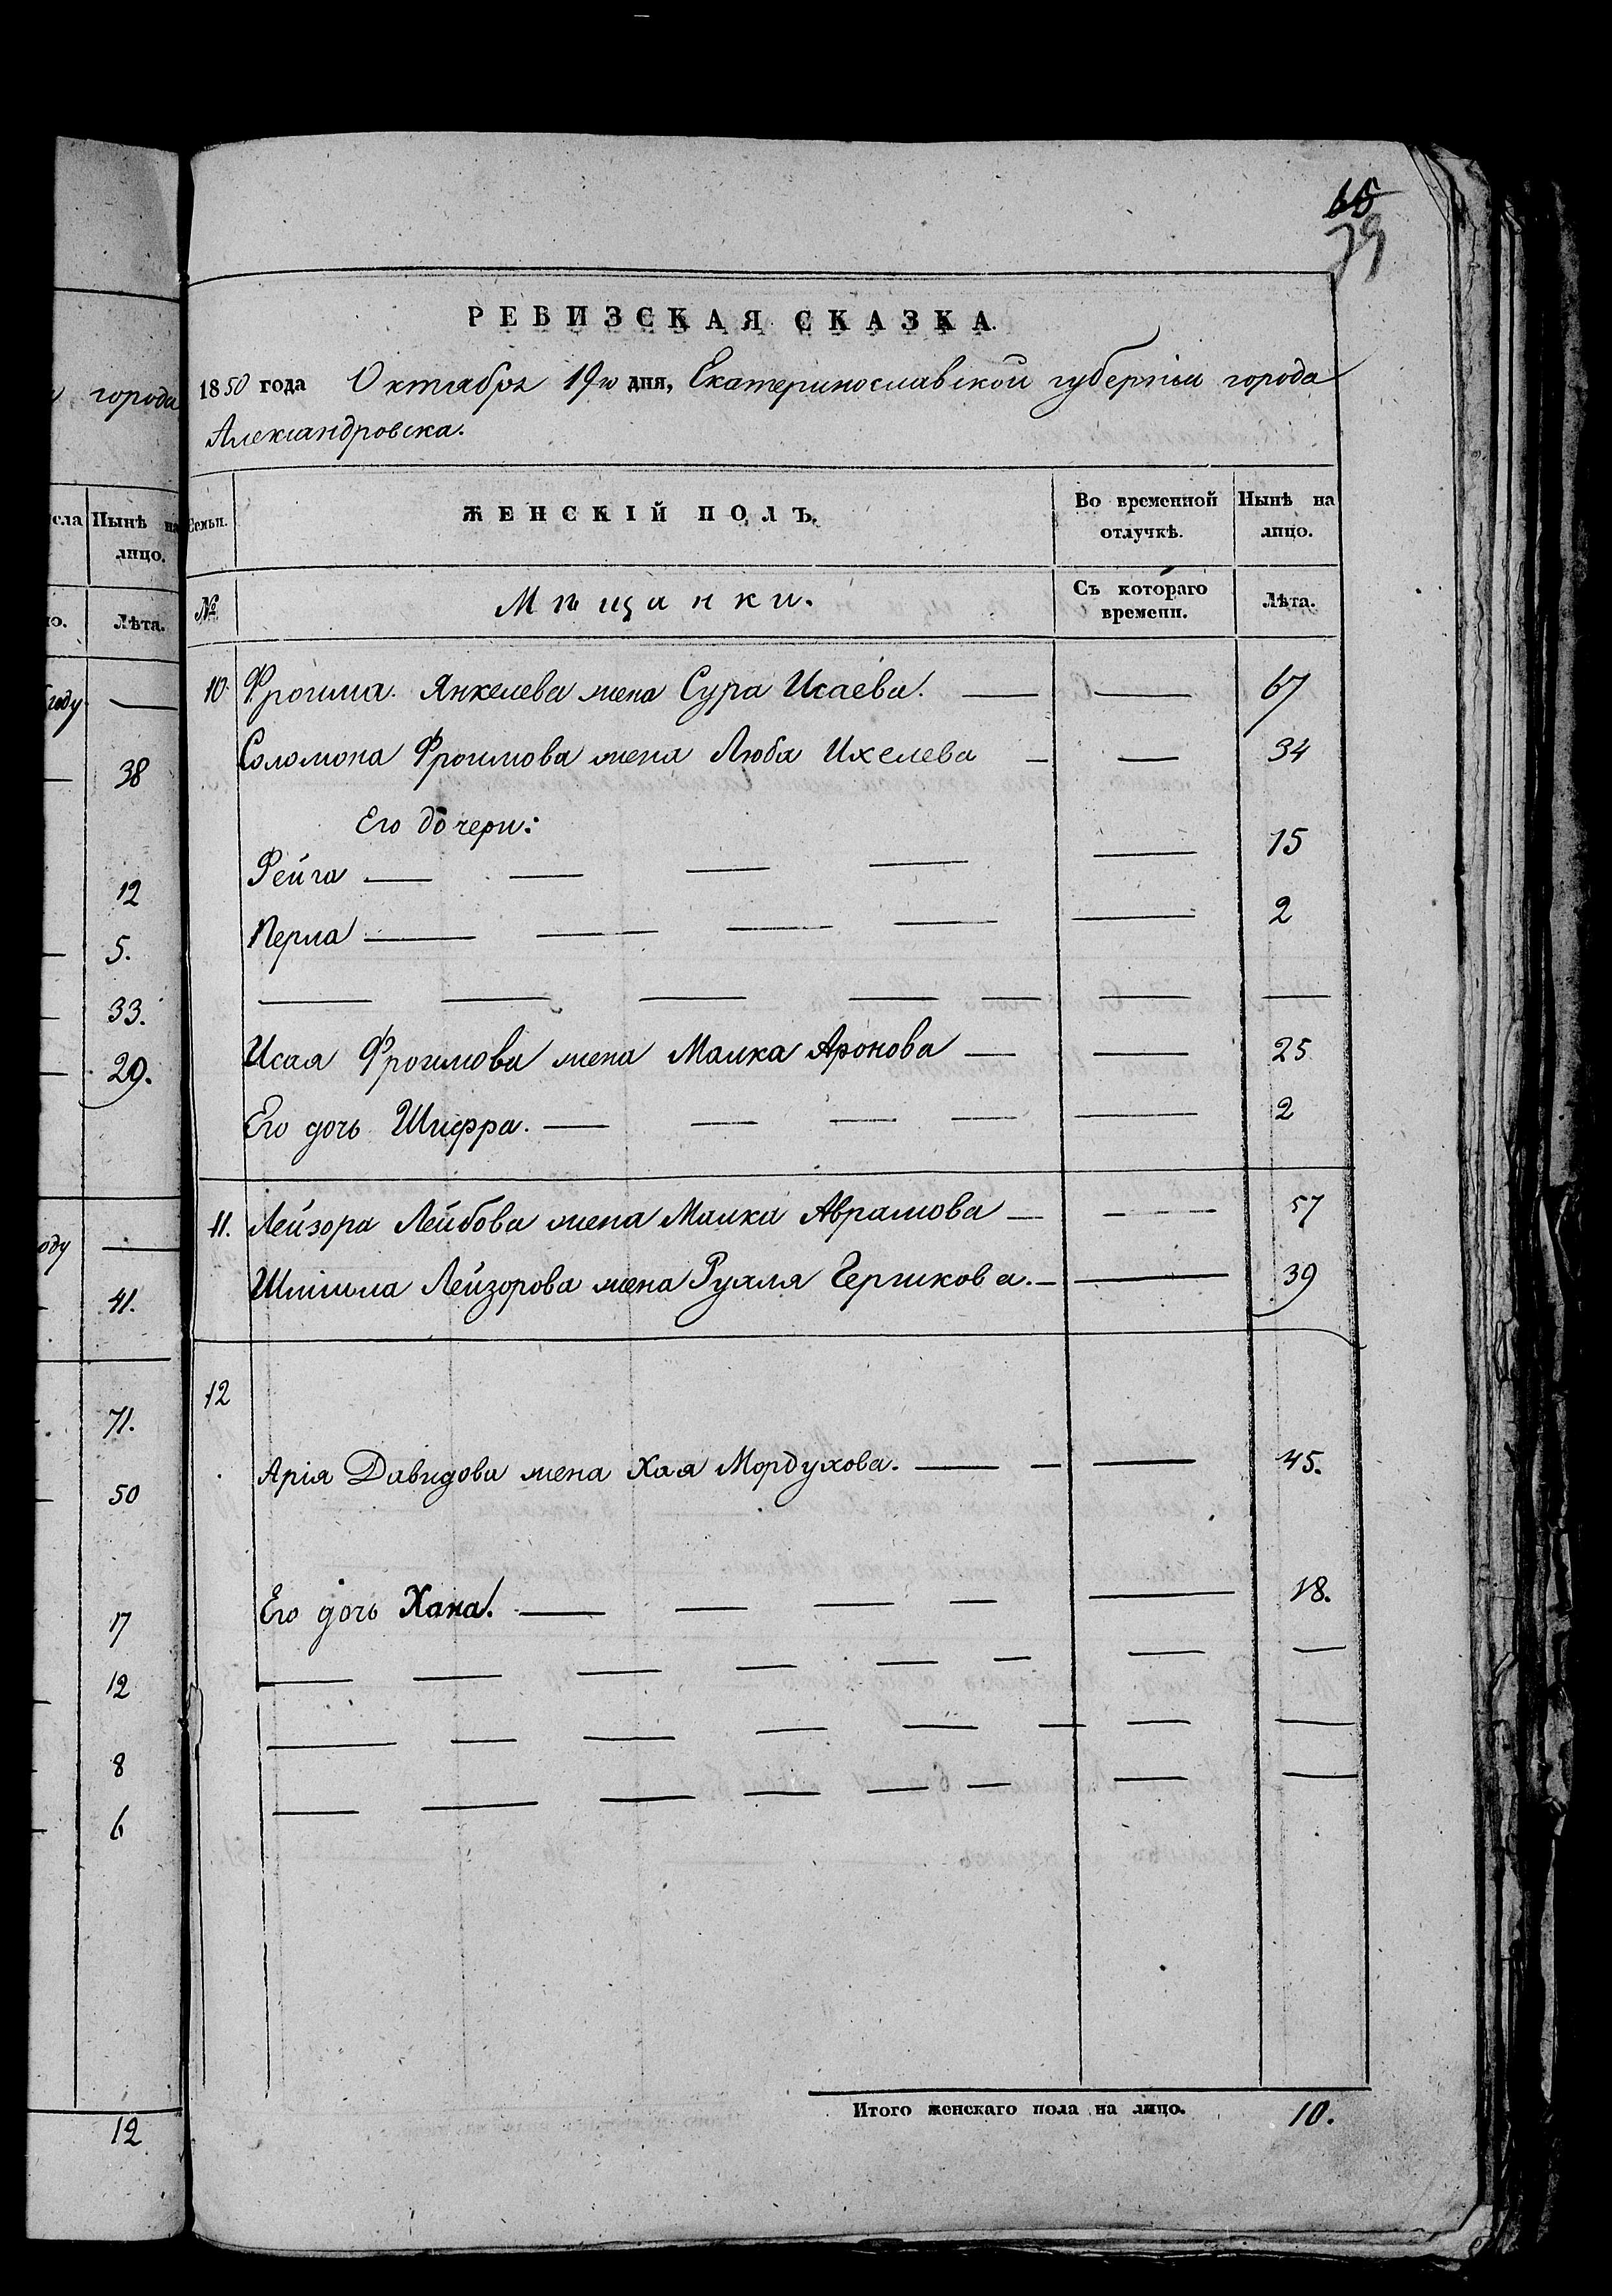 65
79
РЕВИЗСКАЯ СКАЗКА.
1850 года Октября 19го дня, Екатеринославской губерніи города
Александровска.
города
Семьи.
ЖЕНСКІЙ ПОЛЪ.
Во временной отлучкѣ.
Нынѣ на лицо.
сла Нынѣ на лицо.
№
Мѣщанки.
Съ котораго времени.
Лѣта.
Лѣта.
10. Фроима Янкелева жена Сура Исаева. 67
году
Соломона Фроимова жена Люба Ихелева 34
38
Его дочери:
Фейга 15
12
Перла 2
5.
33.
Исая Фроимова жена Малка Аронова 25
29.
Его дочь Шифра. 2
11. Лейзора Лейбова жена Малка Аврамова 57
оду
Шлиома Лейзорова жена Рухля Гершкова. 39
41.
12
71.
Арія Давидова жена Хая Мордухова. 45.
50
Его дочь Хана. 18.
17
12
8
6
Итого женскаго пола на лицо. 10.
12